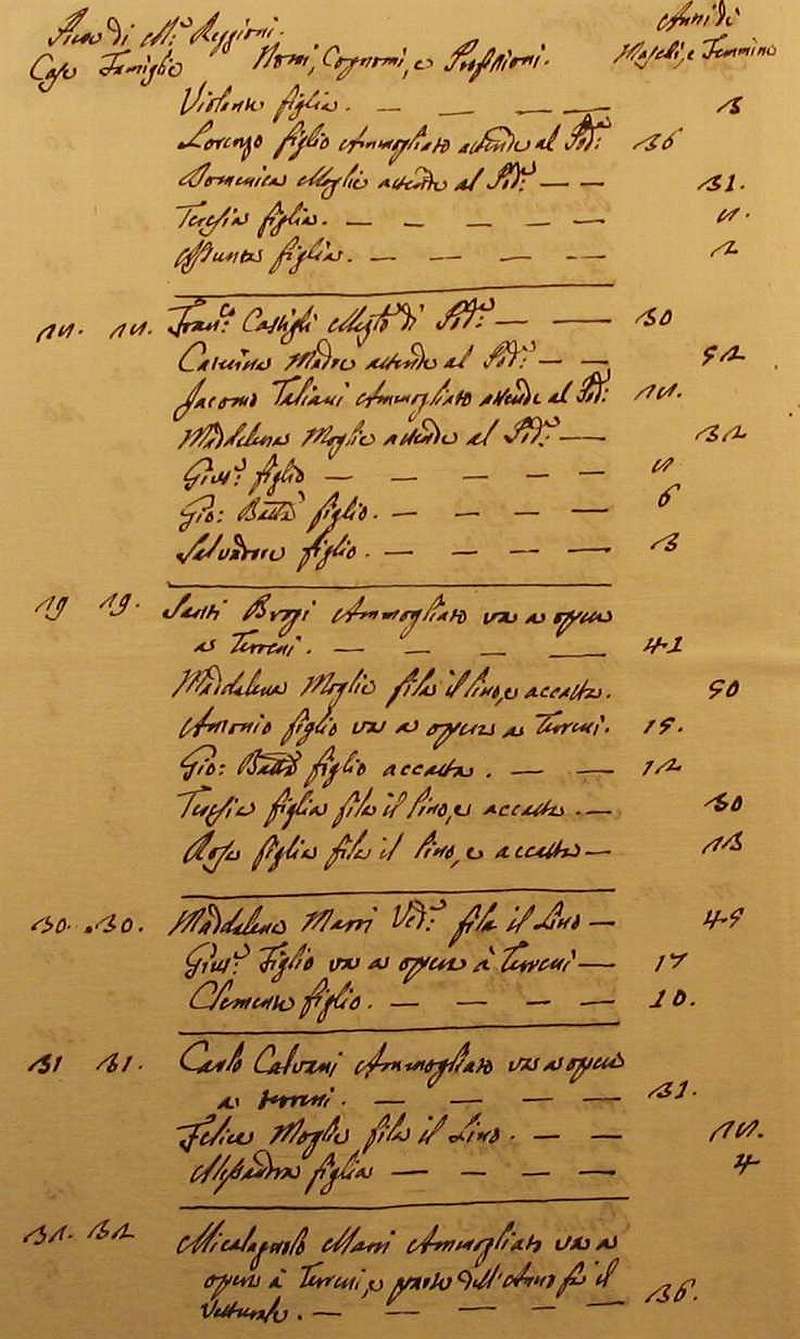 Pieve di M: Reggioni. Anni di
Case Famiglie Nomi, Cognomi, e Professioni. Maschi, e Femmine
Violante figlia. — — — — 3
Lorenzo figlio Ammogliato attende al Pod:e 36
Domenica Moglie attende al Pod:e — — 31.
Teresia figlia. — — — — —
Assunta figlia. — — — — 2
Fran:co Castigli Mezz:o di Pod:e — — 30
Caterina Madre attende al Pod:e — — 52
Jacomo Taliani Ammogliato attende al Pod:e
Maddalena Moglie attende al Pod:e — 32
Gius:e figlio — — — — —
Gio: Batta figlio. — — — — 6
Salvadore figlio. — — — — 3
29 29. Santi Brogi Ammogliato va a opera
a Terreni. — — — — 41
Maddalena Moglie fila il lino, e accatta. 50
Antonio figlio va a opera a Terreni. 15.
Gio: Batta figlio accatta. — — 12
Teresia figlia fila il lino, e accatta. — 20
Rosa figlia fila il lino, e accatta — 13
30. 30. Maddalena Marri Ved:a fila il Lino — 45
Gius:e Figlio va a opera à Terreni — 17
Clemente figlio. — — — — 10.
31 31. Carlo Calvani Ammogliato va a opera
a terreni. — — — — 31.
Felice Moglie fila il Lino. — —
Alessandra figlia — — — — 4
32. 32 Micalagnolo Marri Ammogliato va a
opera à Terreni, e parte dell'Anno fa il
Vetturale. — — — — 36.